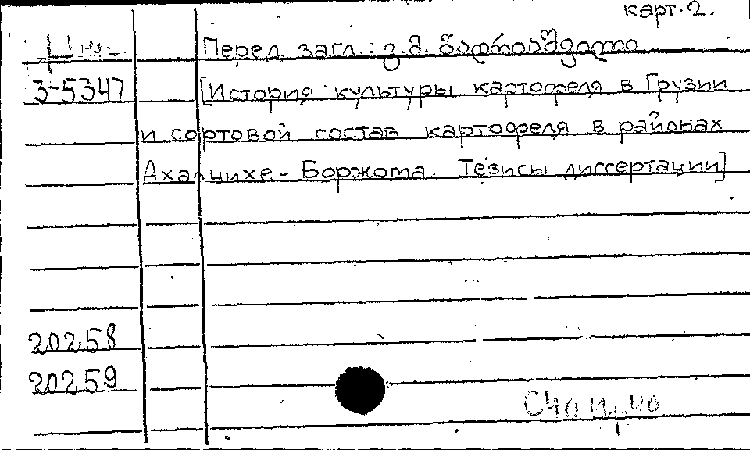 карт. 2.
Перед загл.: გ. მ. ბადრიაშვილი
3-5347 [История культуры картофеля в Грузии
и сортовой состав картофеля в районах
Ахалцихе - Боржома. Тезисы диссертации]
20258
20259